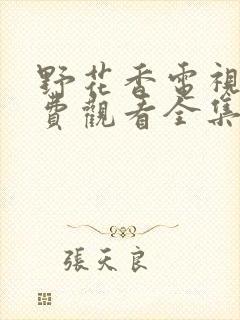 野花香電視
費觀看全集
張天良